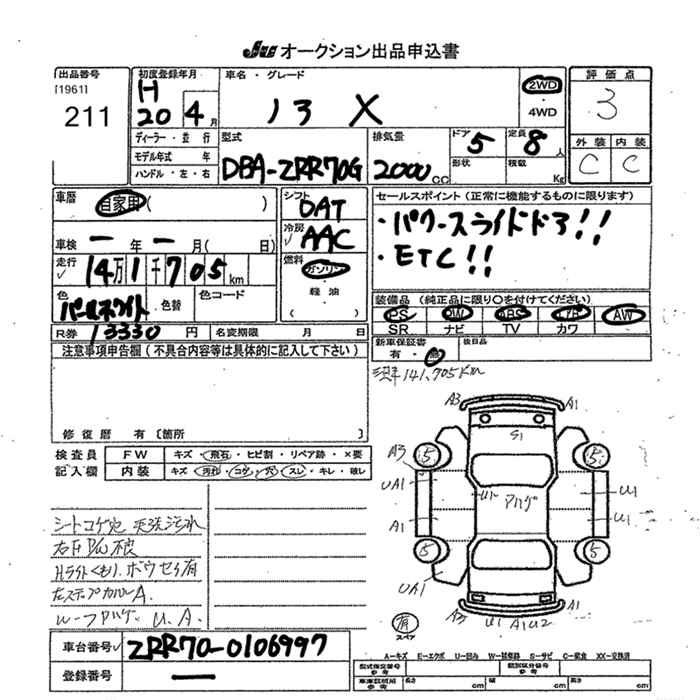 JU オークション出品申込書
出品番号
[1961]
211
初度登録年月
H
20 4月
ディーラー・並行
モデル年式 年
ハンドル・左・右
車名・グレード
X
2WD
・
4WD
評価点
3
外装 内装
C C
型式
DBA-ZRR70G
排気量
2000cc
ドア 5
形状
定員 8人
積載 Kg
車歴
自家用( )
車検 ー年 ー月( 日)
走行 14万1千705km
色
パールホワイト
色替
色コード
R券 13330円
名変期限 月 日
シフト
DAT
冷房
AAC
燃料
ガソリン
・
軽油
・
( )
セールスポイント(正常に機能するものに限ります)
・パワースライドドア!!
・ETC!!
装備品(純正品に限り○を付けてください)
PS PW ABS エアB AW
SR ナビ TV カワ
新車保証書
有・無
後日品
現車141,705km
注意事項申告欄(不具合内容等は具体的に記入して下さい)
修復歴 有〔箇所
検査員
記入欄
FW キズ・飛石・ヒビ割・リペア跡・×要
内装 キズ・汚れ・コゲ・穴・スレ・キレ・破レ
シートコゲ穴 天張汚れ
Hライトくもり、ボウセイ有
左ステップカバーA.
ルーフアハゲ U.A.
A3 A1
S1
A3 5 5
UA1 U1 アハゲ U1
A1 U1
5 5
UA1
A3 U1 A1U2 A1
有
スペア
車台番号 ZRR70-0106997
登録番号 ー
A-キズ E-エクボ U-凹み W-補修跡 S-サビ C-腐食 XX-交換済
型式指定番号
参考
類別区分番号
参考
車庫証明用
参考
長さ cm 幅 cm 高さ cm